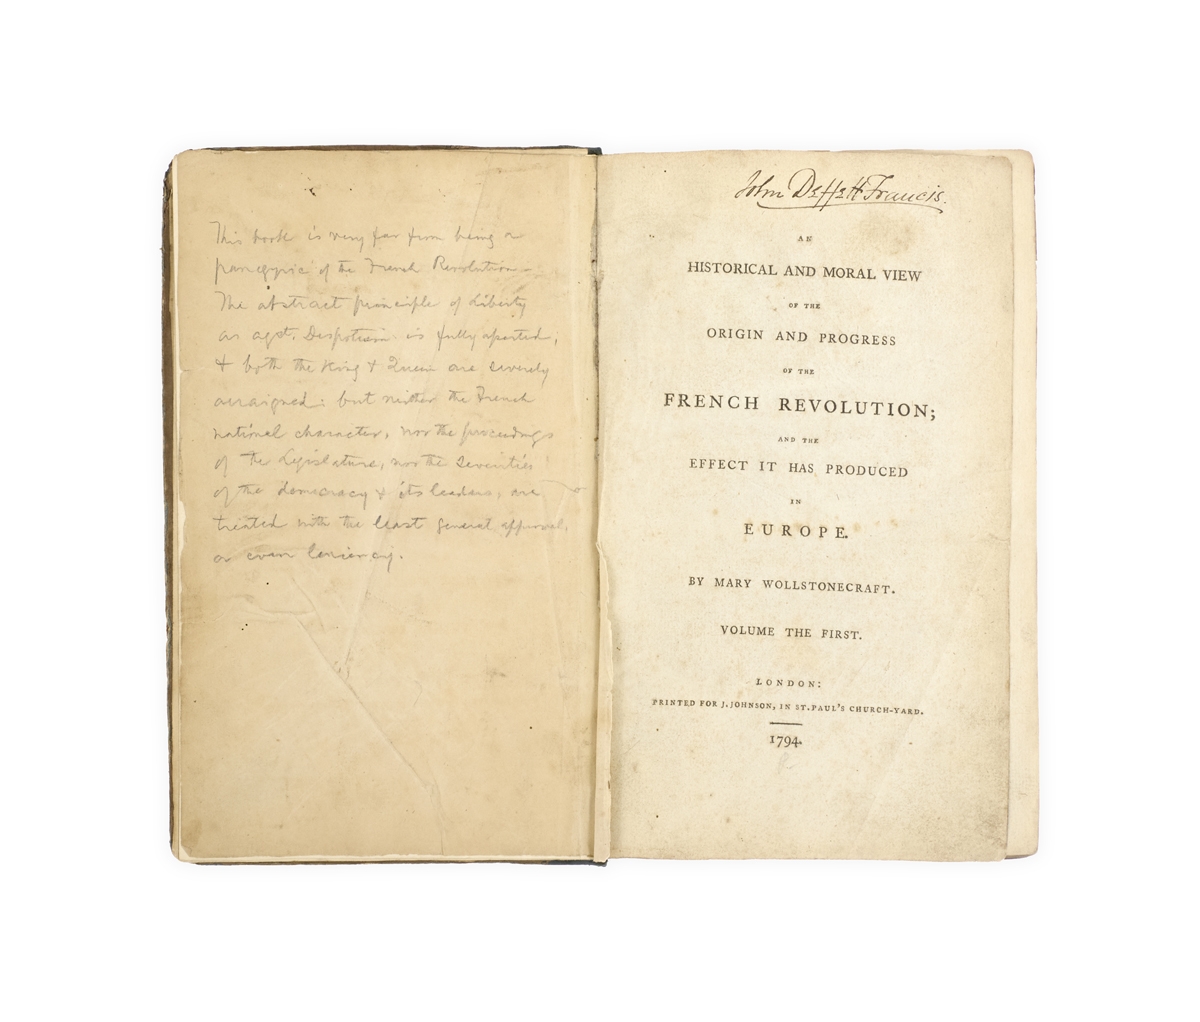 This book is very far from being a
panegyric of the French Revolution –
The abstract principle of Liberty
as agst. Despotism is fully asserted;
& both the King & Queen are severely
arraigned: but neither the French
national character, nor the proceedings
of the Legislature, nor the severities
of the democracy & its leaders, are
treated with the least general approval,
or even leniency.
John Deffett Francis.
AN
HISTORICAL AND MORAL VIEW
OF THE
ORIGIN AND PROGRESS
OF THE
FRENCH REVOLUTION;
AND THE
EFFECT IT HAS PRODUCED
IN
EUROPE.
BY MARY WOLLSTONECRAFT.
VOLUME THE FIRST.
LONDON:
PRINTED FOR J. JOHNSON, IN ST. PAUL'S CHURCH-YARD.
1794.